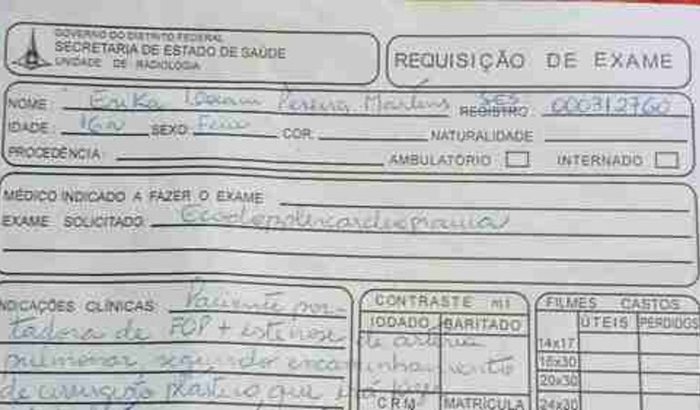 GOVERNO DO DISTRITO FEDERAL
SECRETARIA DE ESTADO DE SAÚDE
UNIDADE DE RADIOLOGIA
REQUISIÇÃO DE EXAME
NOME: Erika Pereira Martins SES REGISTRO: 000312760
IDADE: 16a SEXO Fem COR NATURALIDADE
PROCEDÊNCIA: AMBULATÓRIO INTERNADO
MÉDICO INDICADO A FAZER O EXAME
EXAME SOLICITADO Ecodopplercardiograma
INDICAÇÕES CLÍNICAS: Paciente por-
tadora de FOP + estenose de artéria
pulmonar, segundo encaminhamento
de cirurgião plástico, que
CONTRASTE ml
IODADO BARITADO
C R M MATRÍCULA
FILMES CASTOS
ÚTEIS PERDIDOS
14x17
15x30
20x30
24x30